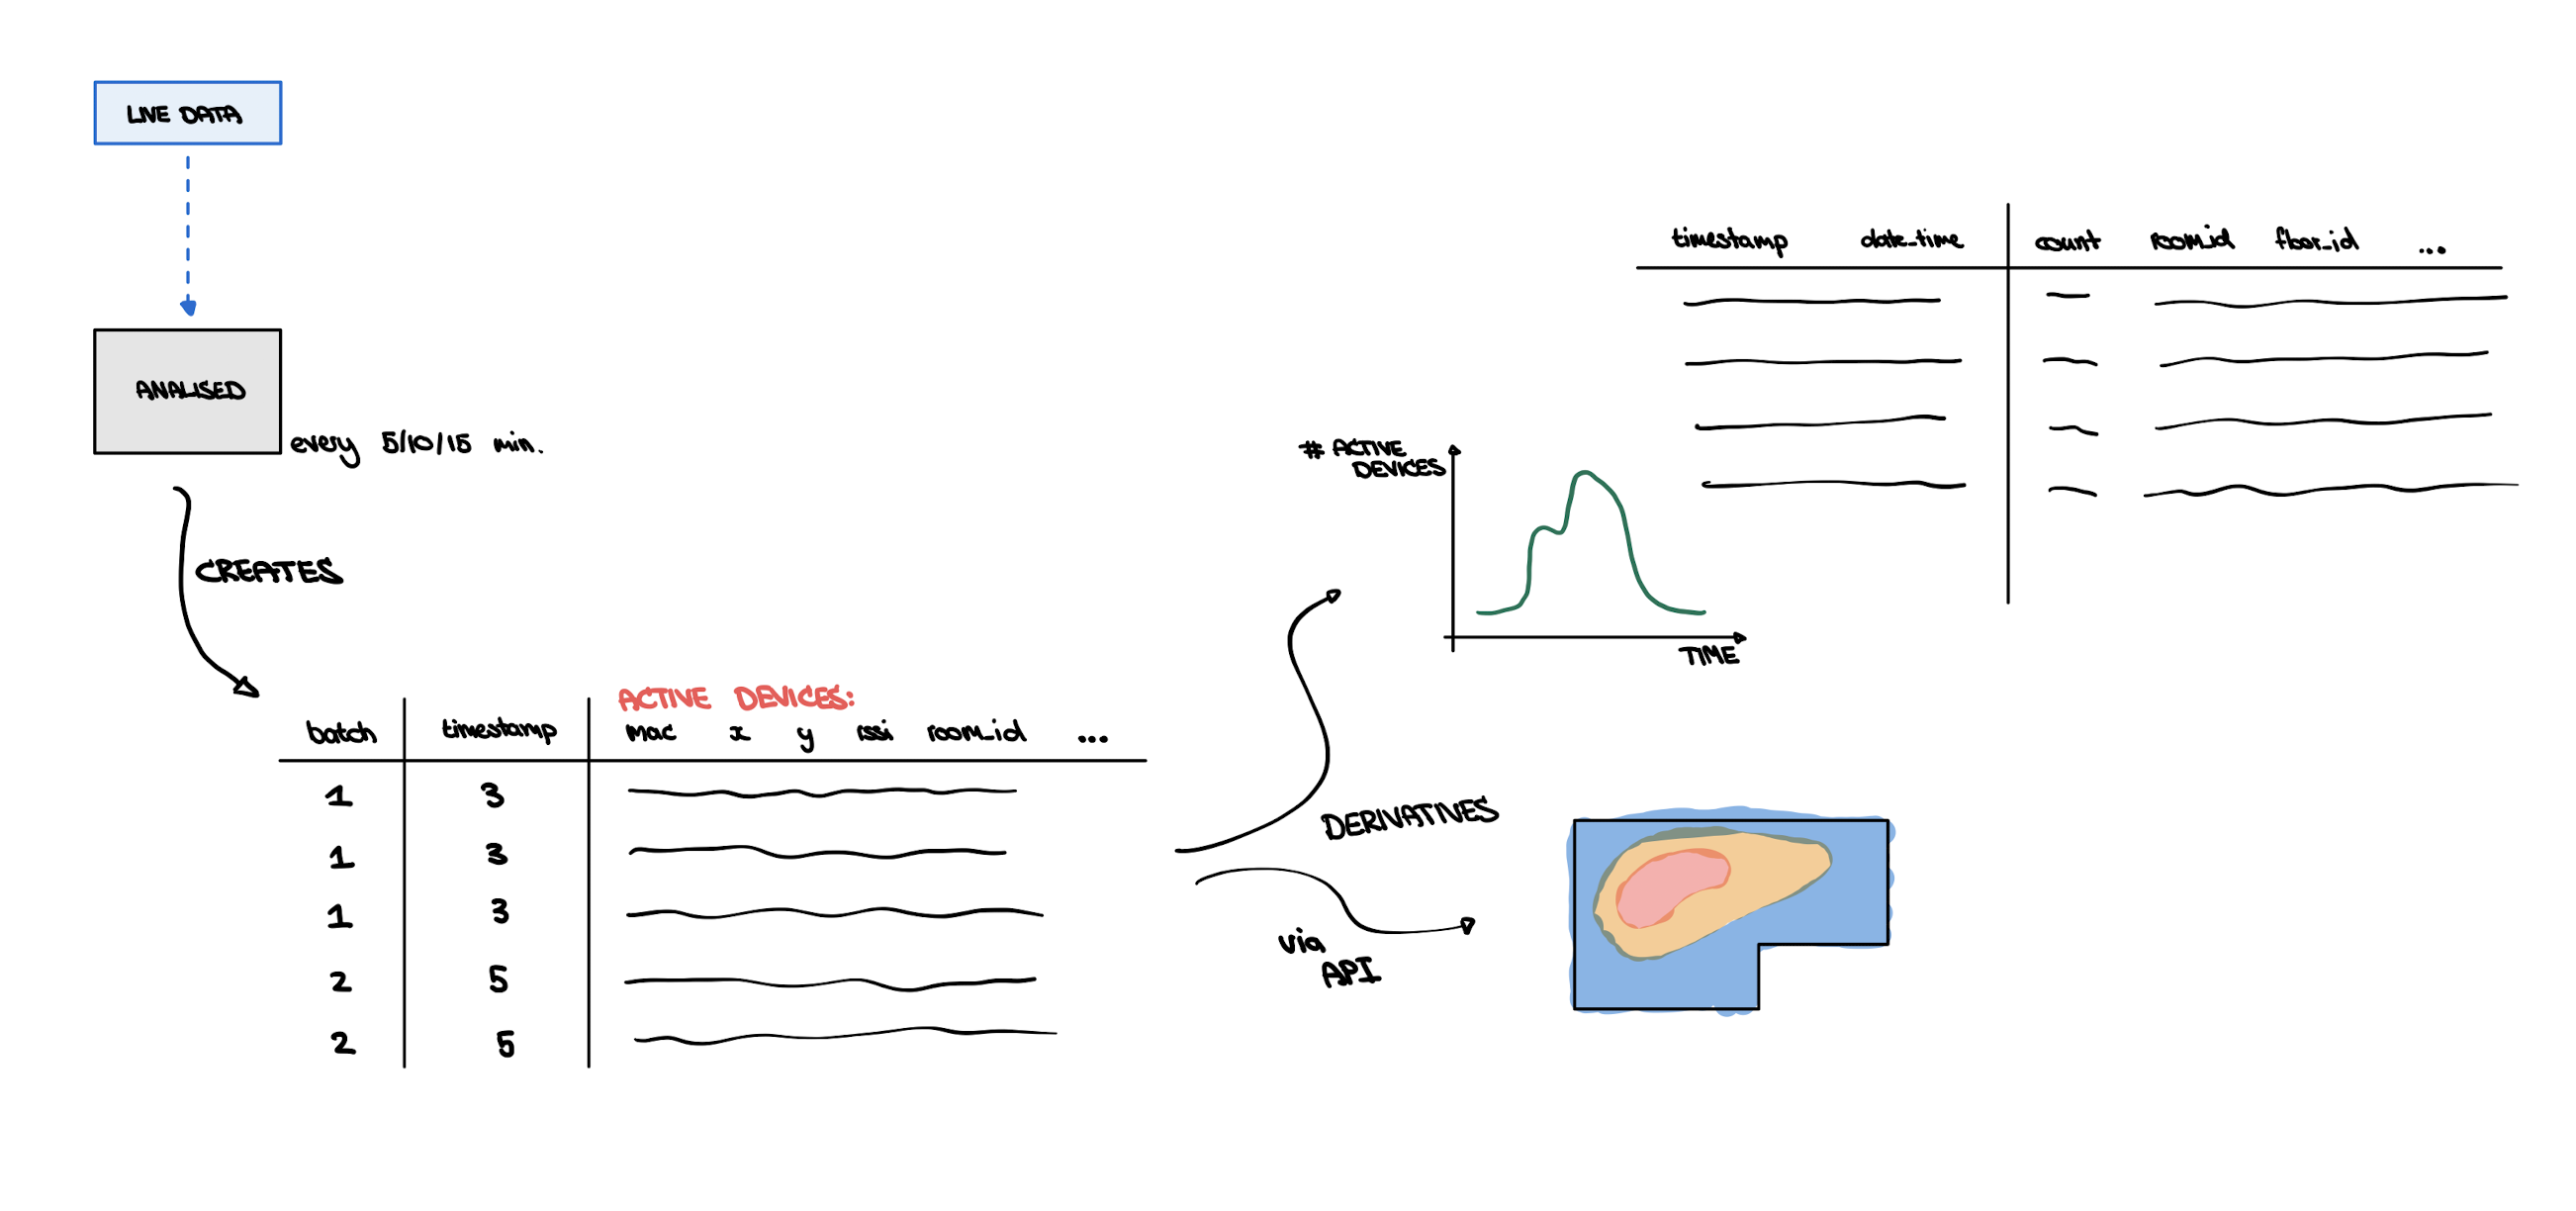 LIVE DATA
ANALISED
every 5/10/15 min.
CREATES
ACTIVE DEVICES:
batch timestamp mac x y rssi room_id ...
1 3
1 3
1 3
2 5
2 5
DERIVATIVES
via
API
# ACTIVE
DEVICES
TIME
timestamp date_time count room_id floor_id ...